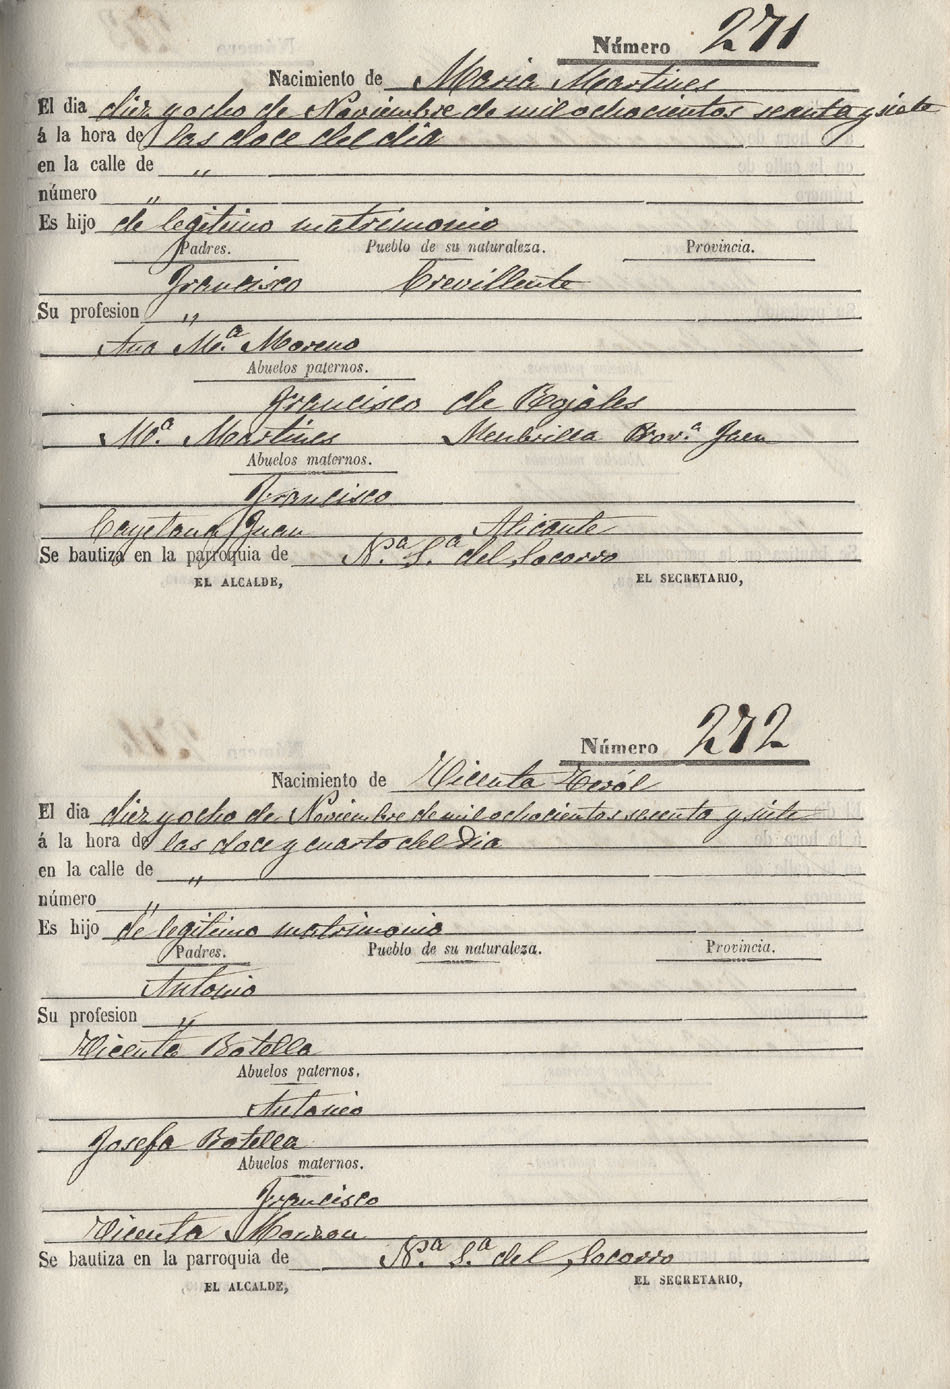 Número 271
Nacimiento de Maria Martines
El dia diez y ocho de Noviembre de mil ochocientos secenta y siete
á la hora de las doce del dia
en la calle de "
número "
Es hijo de legitimo matrimonio
Padres. Pueblo de su naturaleza. Provincia.
Francisco Crevillente
Su profesion "
Ana Mª. Moreno
Abuelos paternos.
Francisco de Rojales
Mª. Martines Prov.ª Jaen
Abuelos maternos.
Francisco
Cayetana Juan Alicante
Se bautiza en la parroquia de Nª. Sª. del Socorro
EL ALCALDE, EL SECRETARIO,
Número 272
Nacimiento de Vicenta Teról
El dia diez y ocho de Noviembre de mil ochocientos secenta y siete
á la hora de las doce y cuarto del Dia
en la calle de "
número "
Es hijo de legitimo matrimonio
Padres. Pueblo de su naturaleza. Provincia.
Antonio
Su profesion "
Vicenta Botella
Abuelos paternos.
Antonio
Josefa Botella
Abuelos maternos.
Francisco
Vicenta Monzon
Se bautiza en la parroquia de Nª. Sª. del Socorro
EL ALCALDE, EL SECRETARIO,